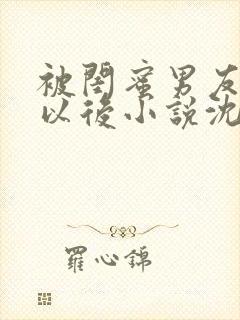 被閨蜜男友
以後小說沈
羅心錦